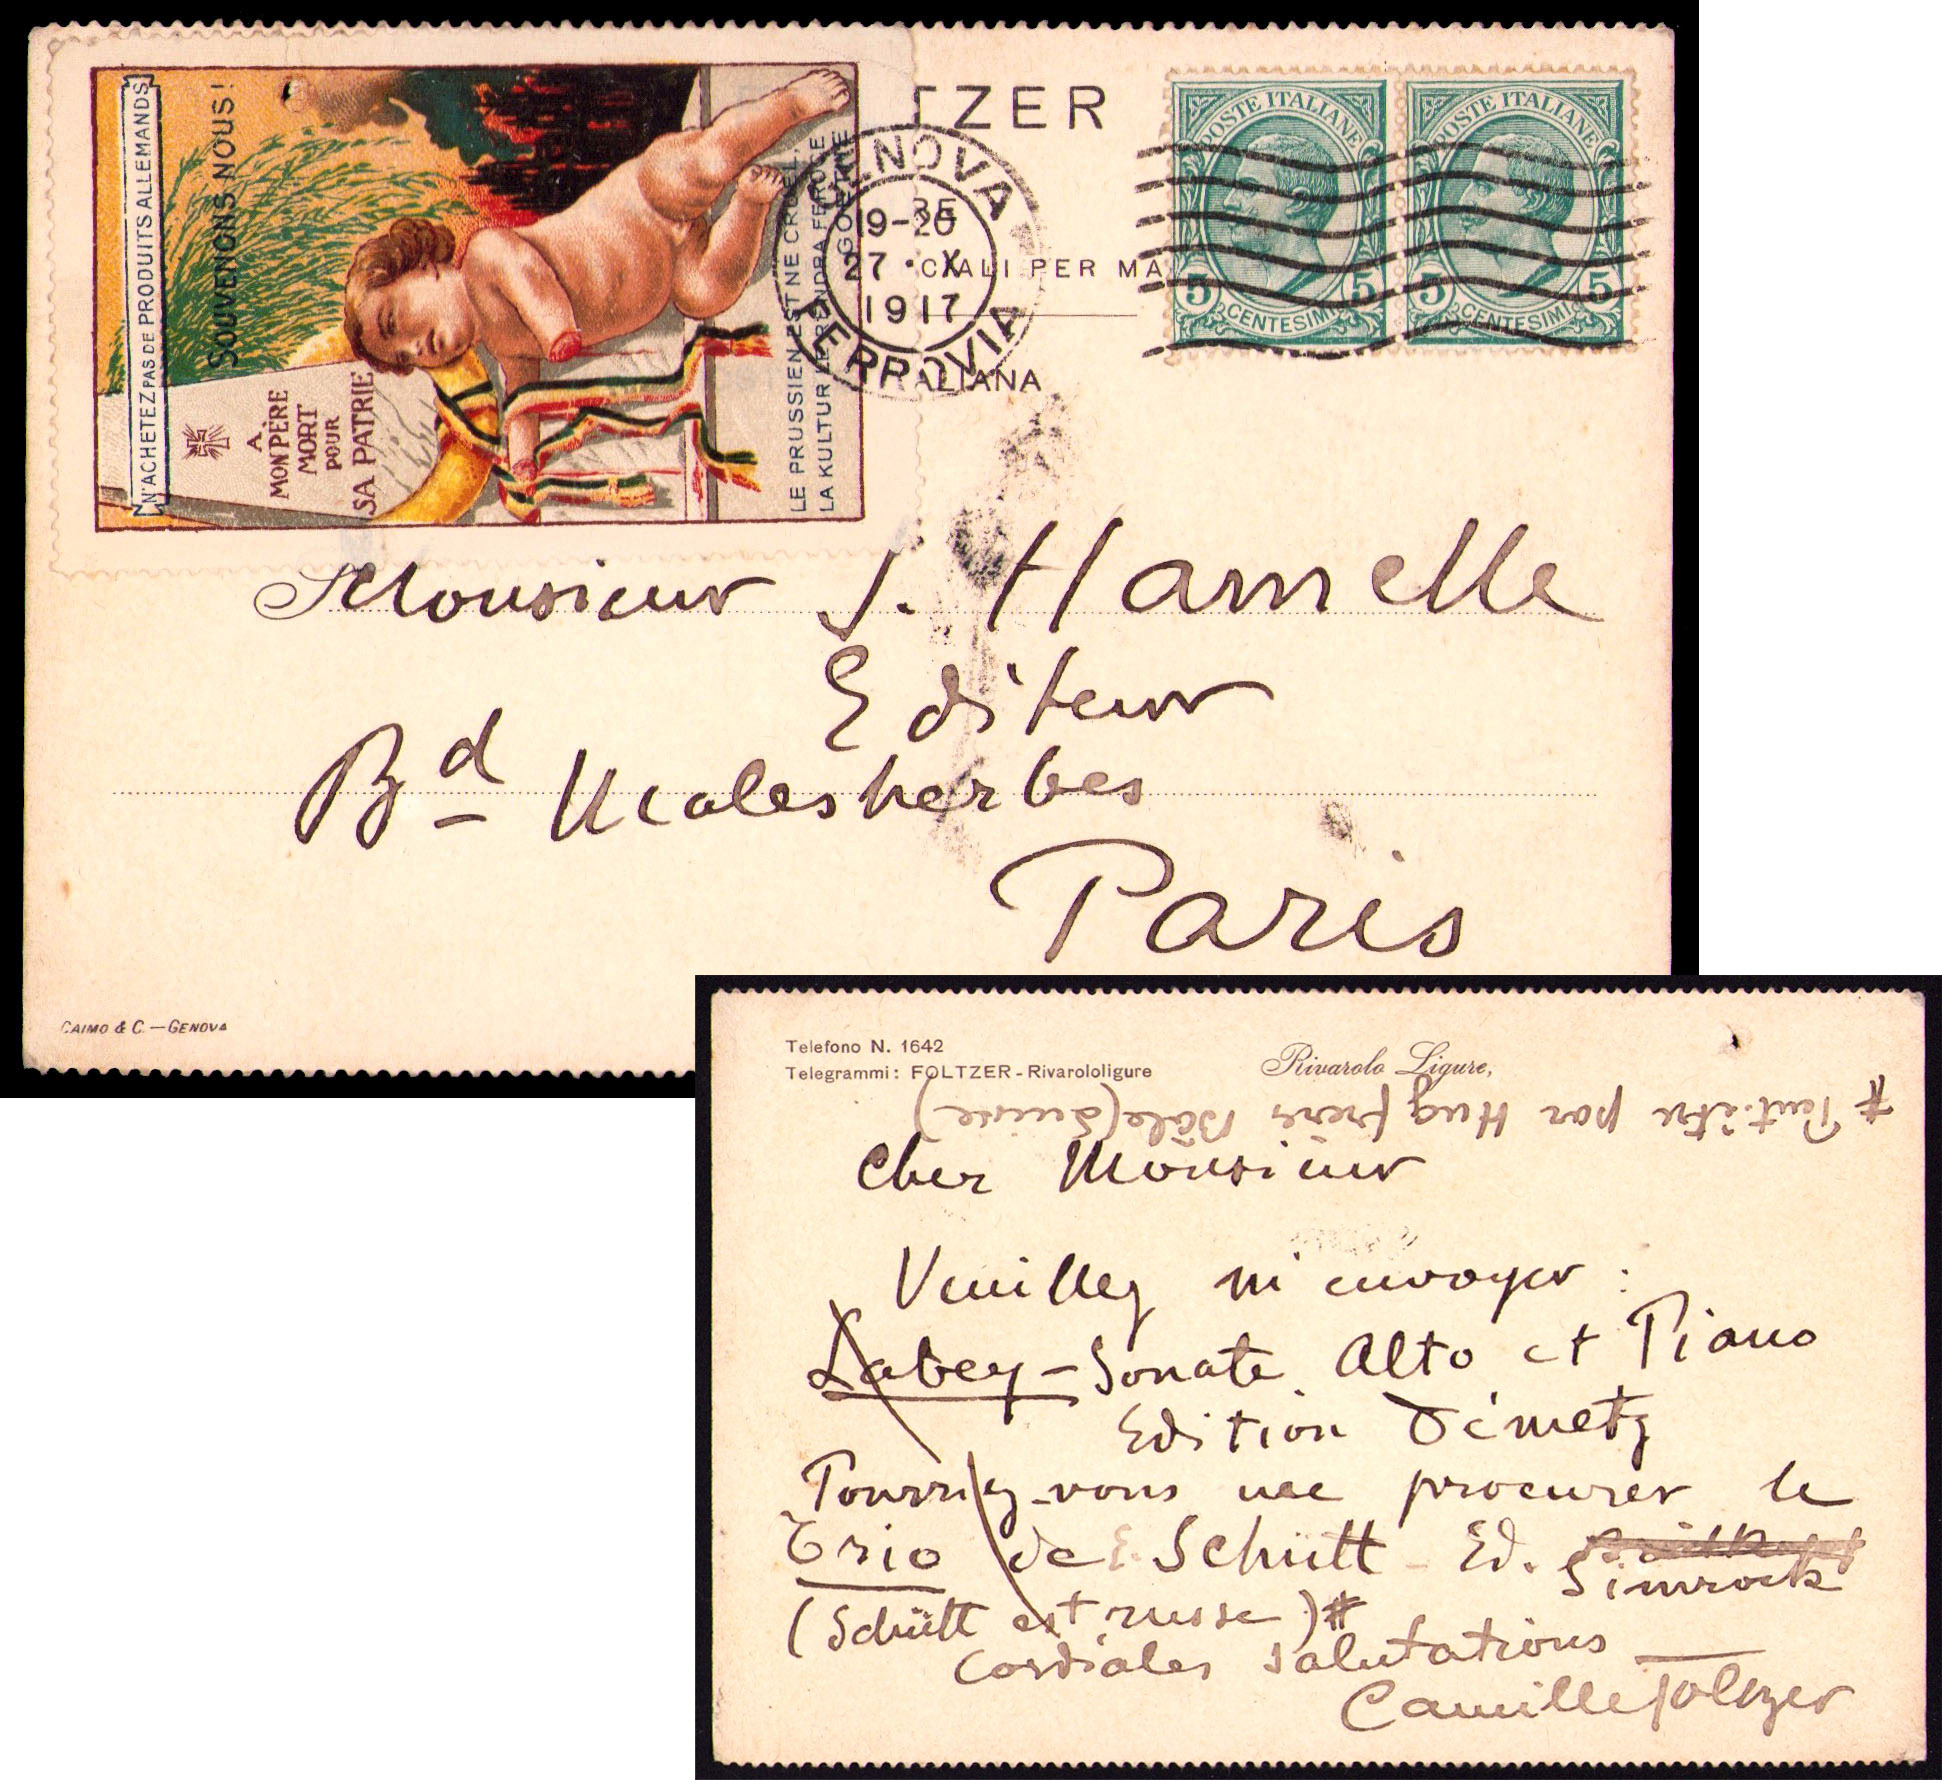 N'ACHETEZ PAS DE PRODUITS ALLEMANDS
SOUVENONS NOUS!
A
MON PÈRE
MORT
POUR
SA PATRIE
LE PRUSSIEN EST NE CRUEL,
LA KULTUR LE RENDRA FEROCE
GOETHE
TZER
GENOVA
19-20
27 · X
1917
FERROVIA
CIALI PER MA
ALIANA
POSTE ITALIANE
5 CENTESIMI 5
POSTE ITALIANE
5 CENTESIMI 5
Monsieur J. Hamelle
Editeur
Bd Malesherbes
Paris
CAIMO & C. — GENOVA
Telefono N. 1642
Telegrammi: FOLTZER - Rivarololigure
Rivarolo Ligure,
# Peut-être par Hug frères Bâle (Suisse)
Cher Monsieur
Veuillez m'envoyer :
Labey - Sonate Alto et Piano
Edition Démetz
Pourriez-vous me procurer le
Trio de E. Schütt - Ed.
Simrock
(Schütt est russe) #
Cordiales salutations
Camille Foltzer